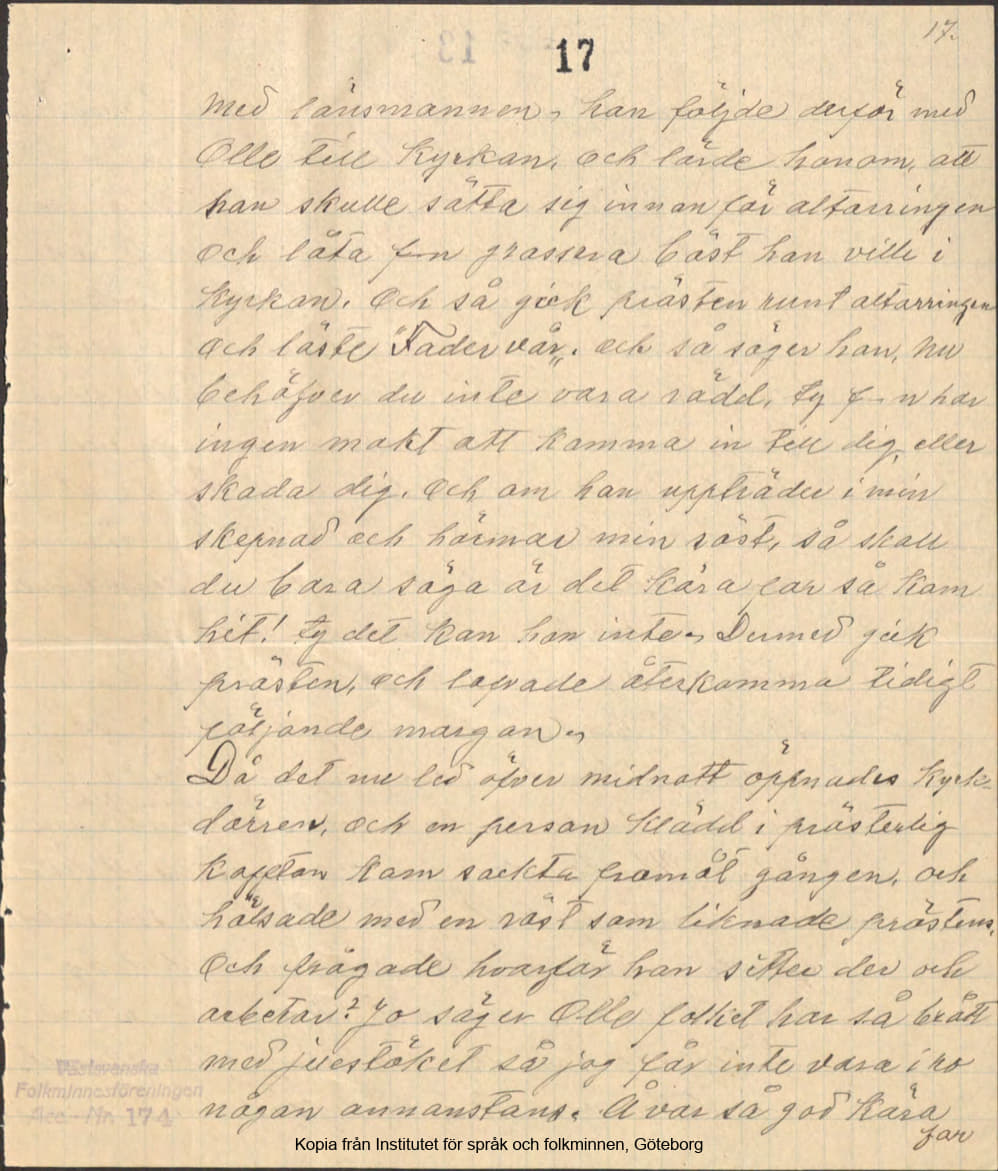 17.
17
med länsmannen, han följde derför med
Olle till Kyrkan, och lärde honom, att
han skulle sätta sig innanför altarringen
och låta f-n grassera bäst han ville i
Kyrkan. Och så gick prästen runt altarringen
och läste "Fader vår". och så säger han, nu
behöfver du inte vara rädd, ty f-n har
ingen makt att komma in till dig, eller
skada dig. Och om han uppträder i min
skepnad och härmar min röst, så skall
du bara säga är det kära far så kom
hit! ty det kan han inte, Dermed gick
prästen, och lofvade återkomma tidigt
följande morgon,
Då det nu led öfver midnatt öppnades Kyrk-
dörren, och en person klädd i prästerlig
kaftan kom sackta framåt gången, och
hälsade med en röst som liknade prästens,
och frågade hvarför han sitter der och
arbetar? Jo säger Olle folket har så brått
med julstöket så jag får inte vara i ro
någon annanstans. Å var så god kära
far
Västsvenska
Folkminnesföreningen
Acc.-Nr. 174
Kopia från Institutet för språk och folkminnen, Göteborg